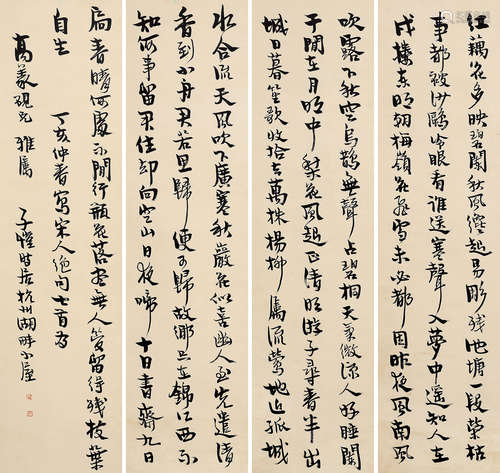 紅藕花多映碧闌秋風纔起易彫残池塘一段榮枯
事都被沙鷗冷眼看 誰送寒聲入夢中遥知人在
戍樓東明朝梅嶺花飛雪未必都因昨夜風 南風
吹露下秋空烏鵲無聲占碧桐天氣微涼人好睡闌
干閒在月明中 梨花風起正清明游子尋春半出
城日暮笙歌收拾去萬株楊柳屬流鶯 地近孤城
水合流天風吹下廣寒秋巖花似喜幽人至先遣清
香到小舟 君若思歸便可歸故鄉只在錦江西不
知何事留君住却向空山日夜啼 十日書齋九日
扃春晴何處不閒行瓶花落盡無人管留得残枝葉
自生 丁亥仲春寫宋人絶句七首為
高義硯兄 雅屬
子愷時居杭州湖畔小屋